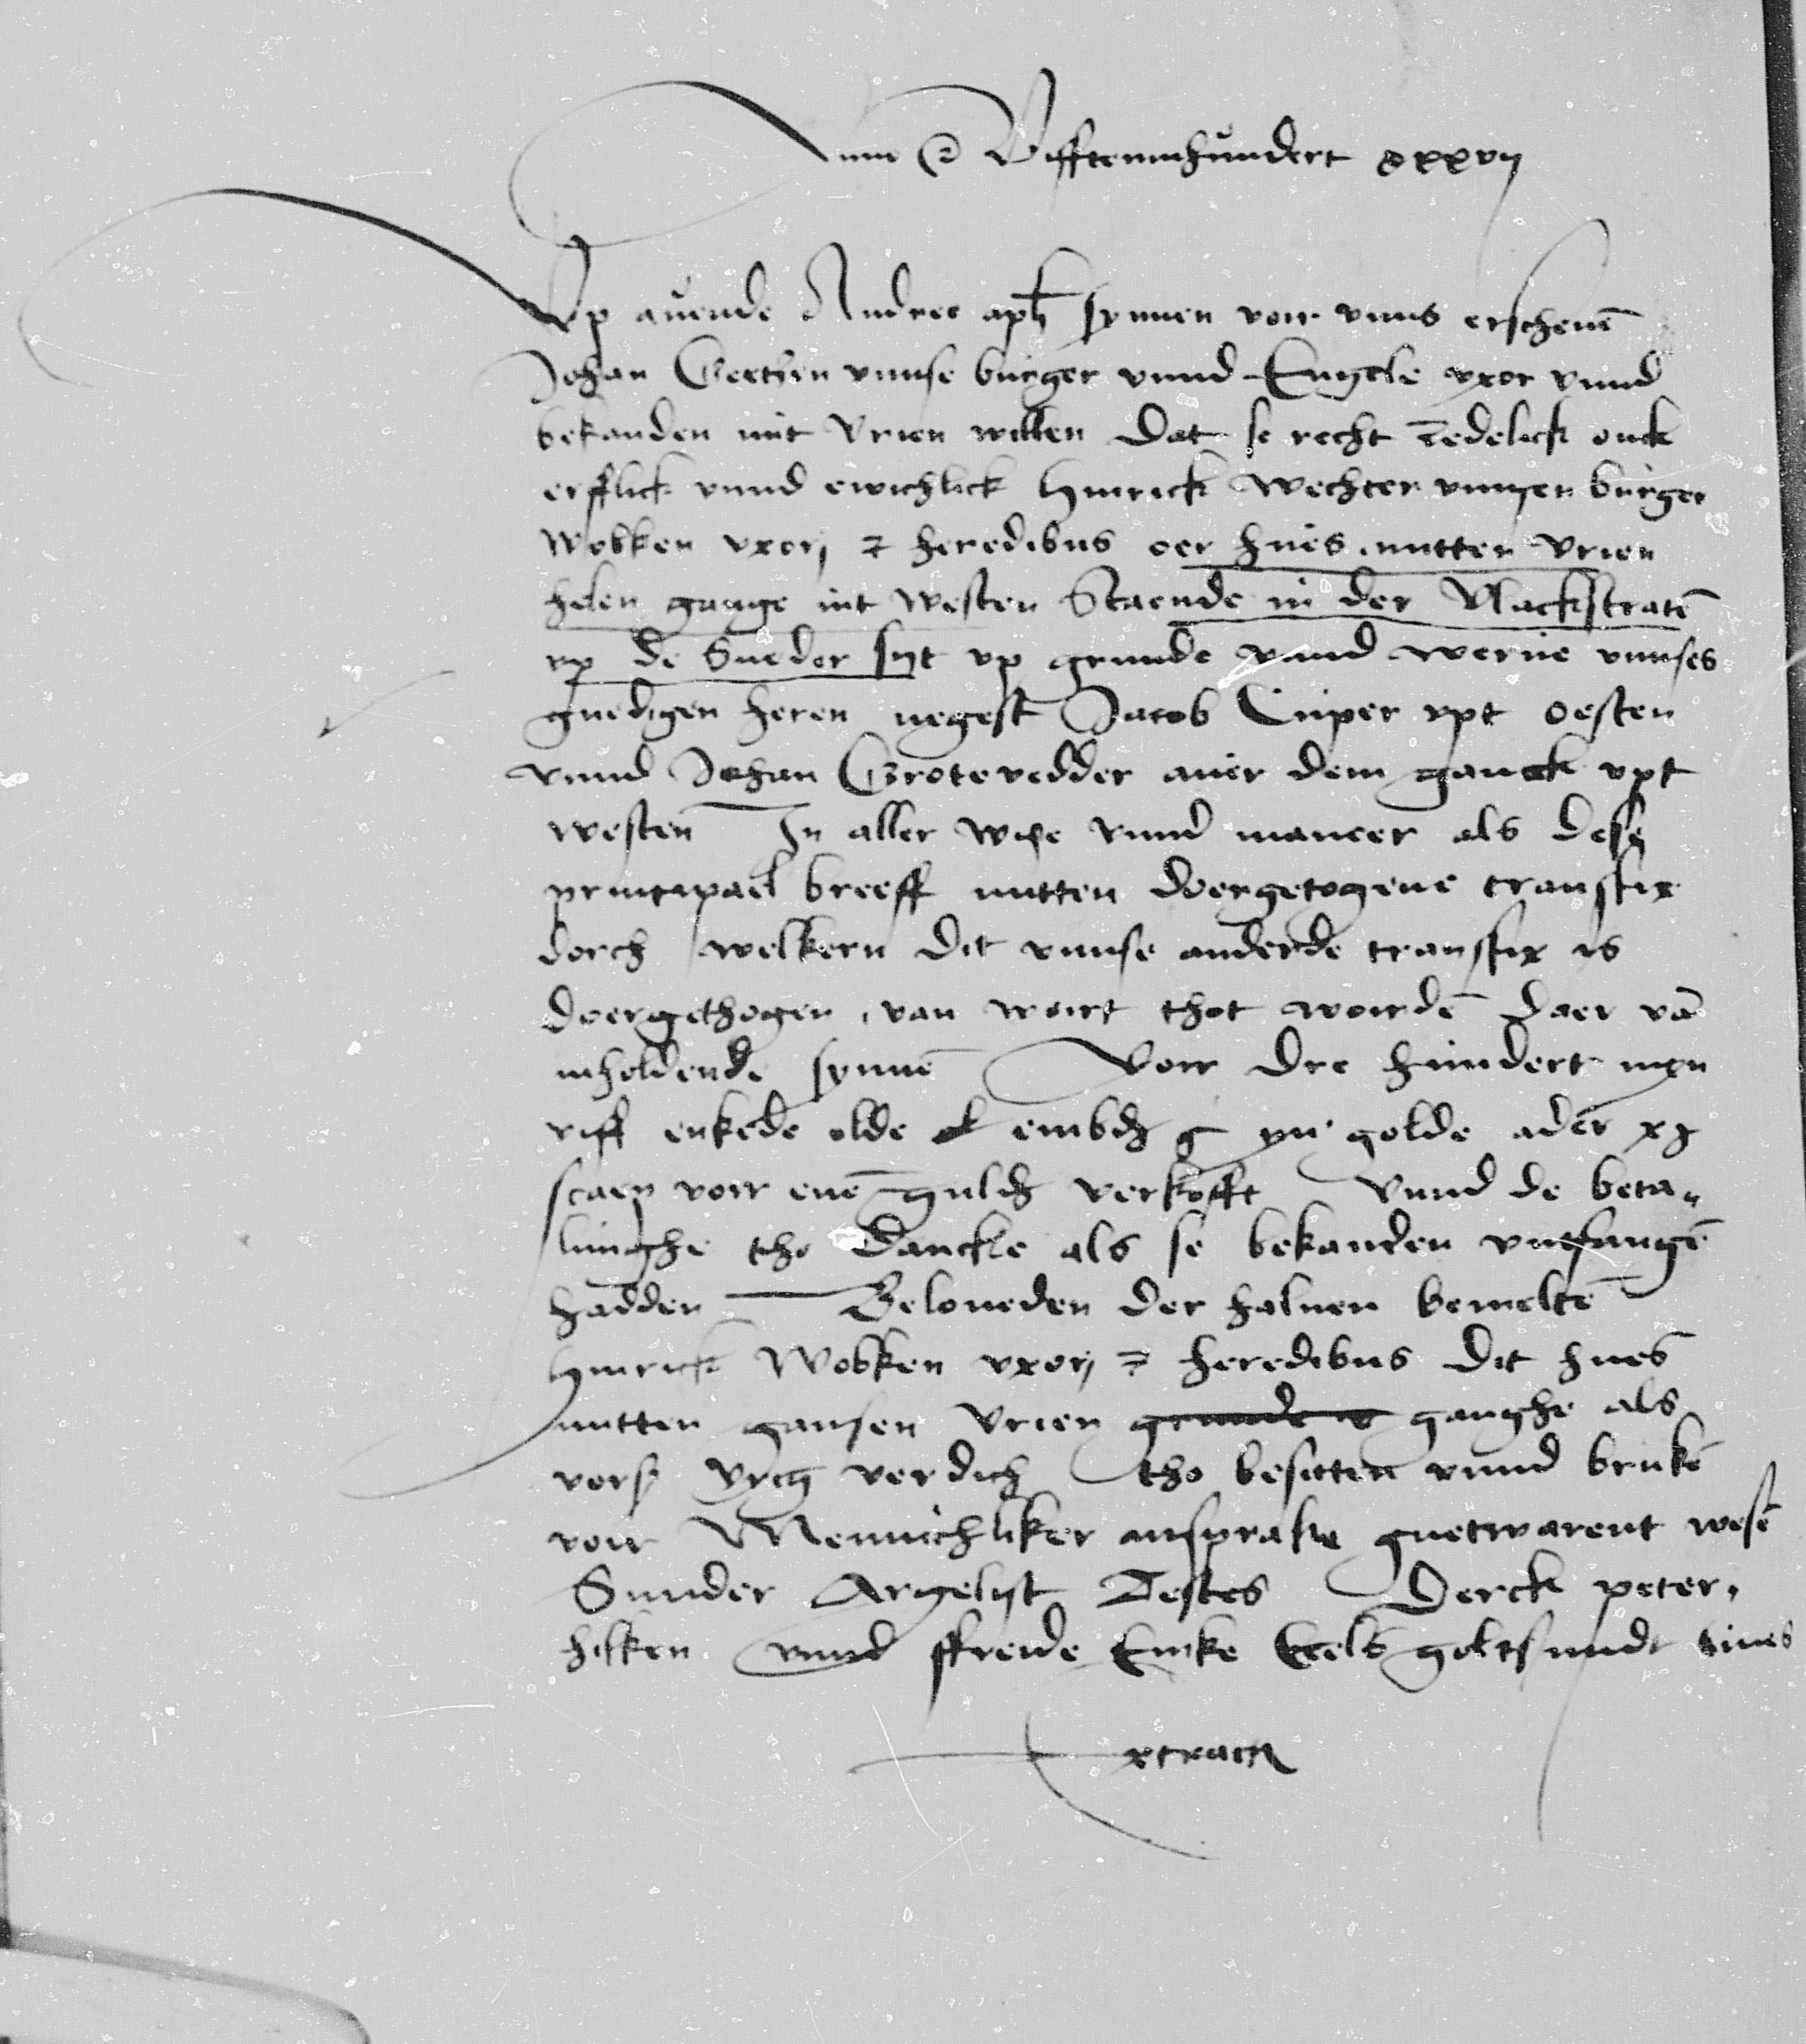 Anno &c Vifftein hundert xxxvij
Vp auende Andree apłi synnen vorr vnns erschenē
Johan Geerthen vnnse burger vnnd Engele vxor vnnd
bekanden mit vrien willen Dat se recht redelick ouck
erfflick vnnd ewichlick Hinrick Wechter vnnsen burger
Wobken vxorj & heredibus oer hues mitten vrien
helen gange int westen Staende in der Vlackstratē
vp de Sueder syt vp grunde vnnd werue vnnses
gnedigen heren negest Jacob Cuper vpt oesten
vnnd Johan Grotevedder auer dem ganck vpt
westen In aller wise vnnd maneer als dese
principael breeff mitten doergetogene transfix
dorch welkern dit vnnse anderde transfix is
doergethogen van wort thot wordē daer vā
inholdende synnē Vorr dre hundert myn
viff enkede olde embd g yn golde ader xj
scaep vorr enē guld verkofft Vnnd de beta„
linghe tho dancke als se bekanden vntfangē
hadden Beloueden der haluen bemeltē
Hinrick Wobken vxorj & heredibus Dit hues
mitten gansen vrien grunde ganghe als
vors vrig verdich tho besitten vnnd brukē
vorr Mennichliker ansprake guetwarent wesē
Sunder Argelist Testes Derck peter„
hilken vnnd ffreide Emke Eeels goltsmidt
Extractū